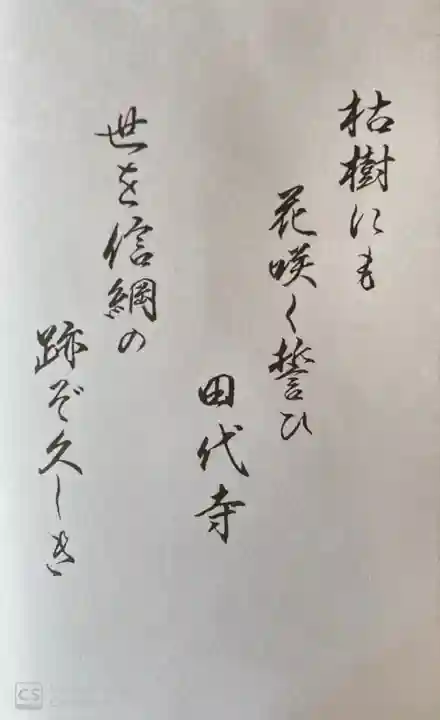 枯樹にも
花咲く誓ひ
田代寺
世を信綱の
跡ぞ久しき
CS